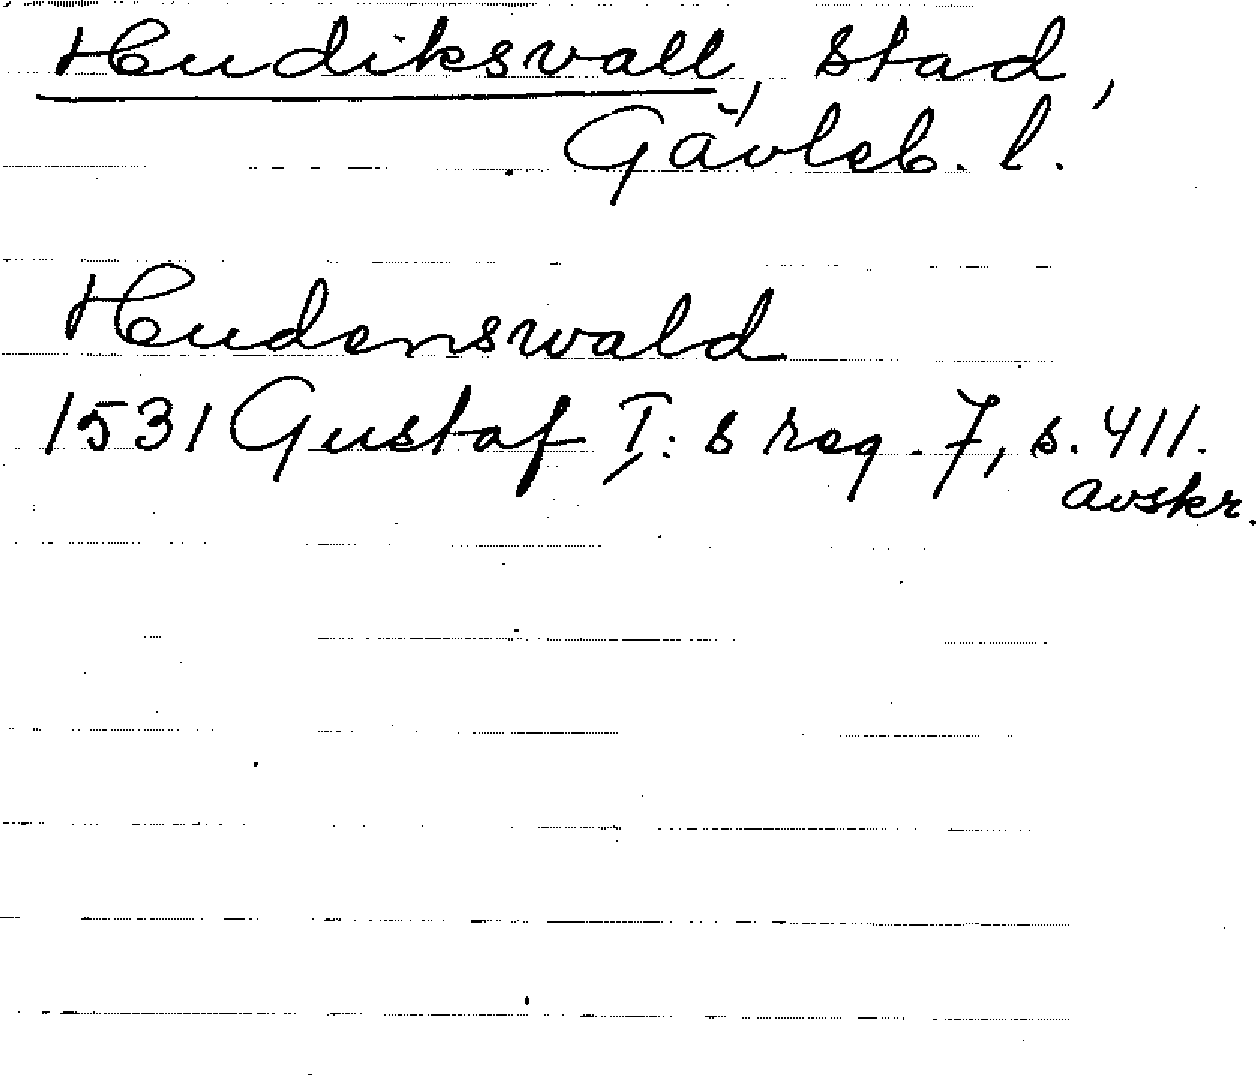 Hudiksvall, stad,
Gävleb. l.
Hudenswald
1531 Gustaf I:s reg. 7, s. 411.
avskr.